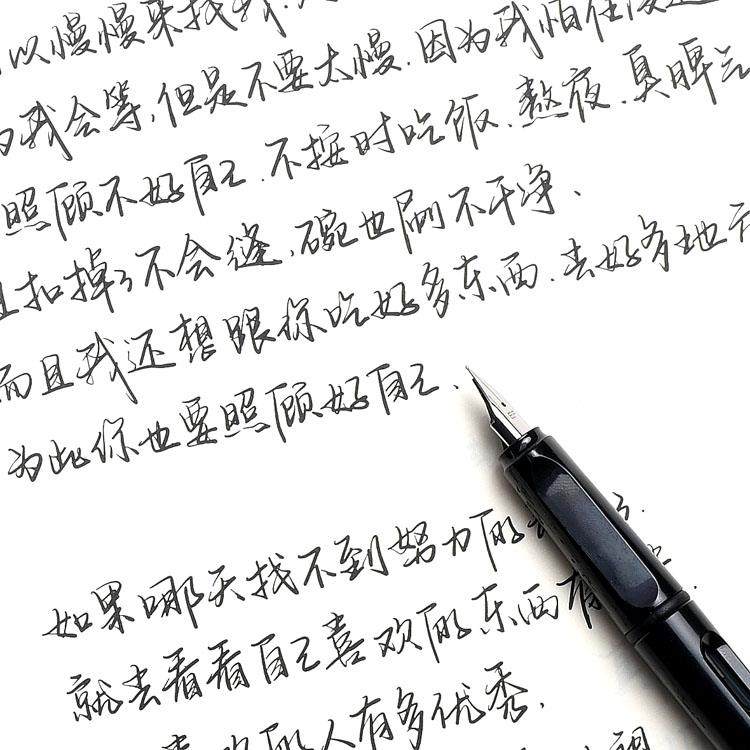 以慢慢来找我
我会等,但是不要太慢.因为我怕
照顾不好自己.不按时吃饭.熬夜.臭脾气
且扣掉了不会缝.碗也刷不干净、
而且我还想跟你吃好多东西.去好多地
为此你也要照顾好自己.
如果哪天找不到努力的
就去看看自己喜欢的东西有
喜欢的人有多优秀.